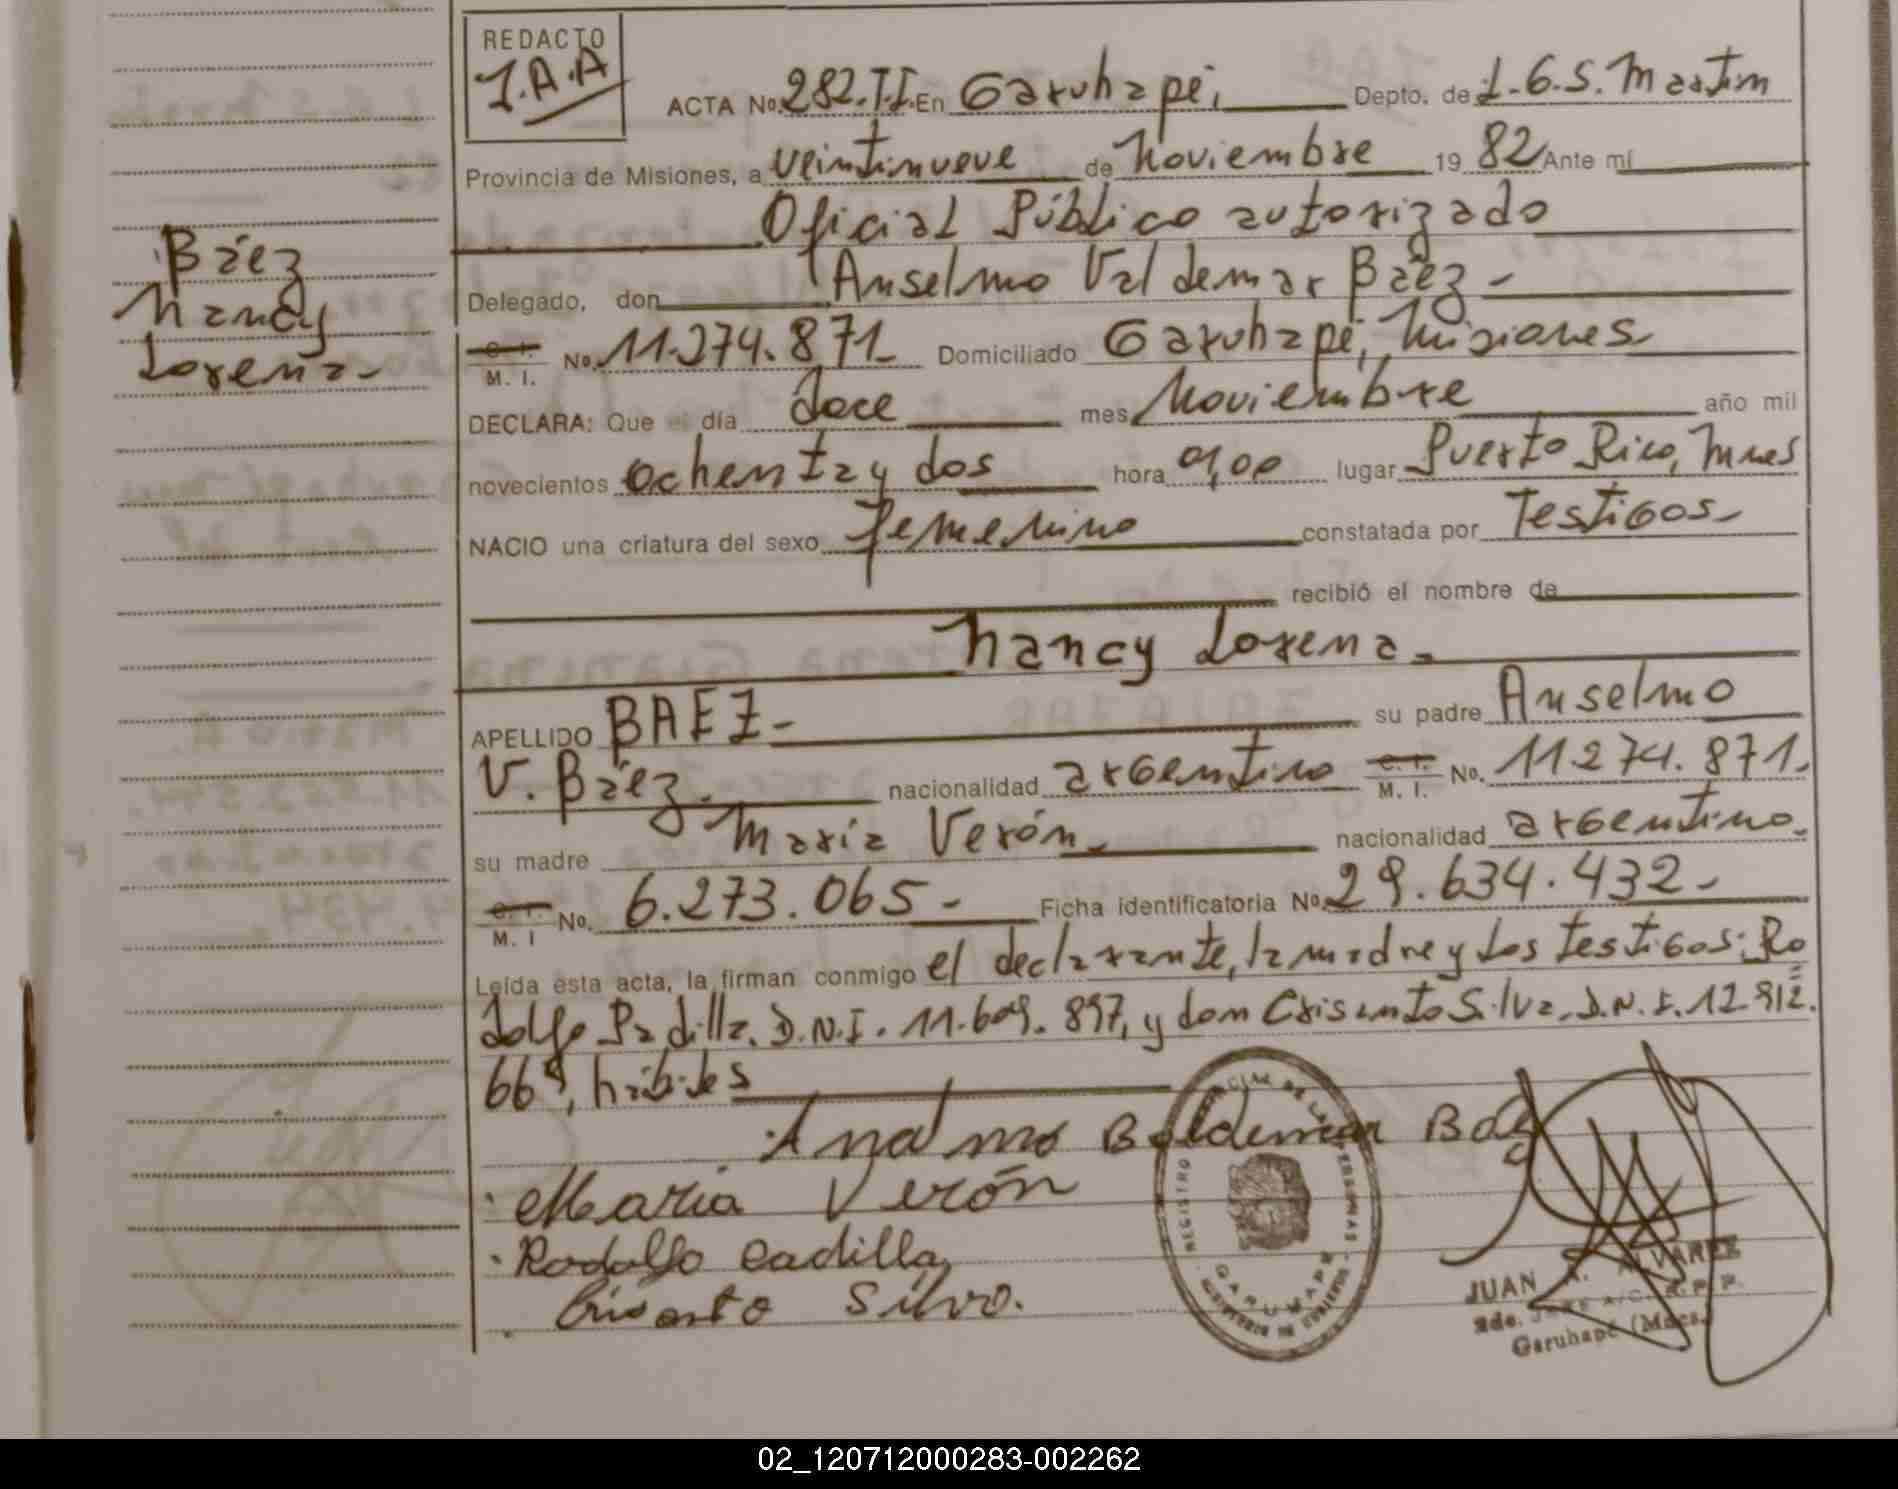 REDACTO
J.A.A
ACTA No. 282.T.I. En Garuhapé, Depto. de L.G.S. Martin
Provincia de Misiones, a veintinueve de Noviembre 19 82 Ante mí
Oficial Público autorizado
Delegado, don Anselmo Valdemar Báez -
C. I. M. I. No. 11.274.871_ Domiciliado Garuhapé, Misiones
DECLARA: Que el día doce mes Noviembre año mil
novecientos ochenta y dos hora 01,00 lugar Puerto Rico, Mnes
NACIO una criatura del sexo femenino constatada por Testigos_
recibió el nombre de
Nancy Lorena_
APELLIDO BAEZ- su padre Anselmo
V. Báez. nacionalidad argentino C. I. M. I. No. 11.274.871.
su madre María Verón_ nacionalidad argentino.
C. I. M. I No. 6.273.065- Ficha identificatoria No. 29.634.432-
Leída esta acta, la firman conmigo el declarante, la madre y los testigos: Ro
dolfo Padilla, D.N.I. 11.609.897, y don Crisanto Silva, D.N.I. 12.912.
669, hábiles
Báez
Nancy
Lorena-
Anselmo Baldemar Baez
María Verón
Rodolfo Padilla
Crisanto Silva.
REGISTRO PROVINCIAL DE LAS PERSONAS
GARUHAPE
JUAN A. ALVAREZ
2do. JEFE A/C. R.P.P.
Garuhapé (Mnes.)
02_120712000283-002262